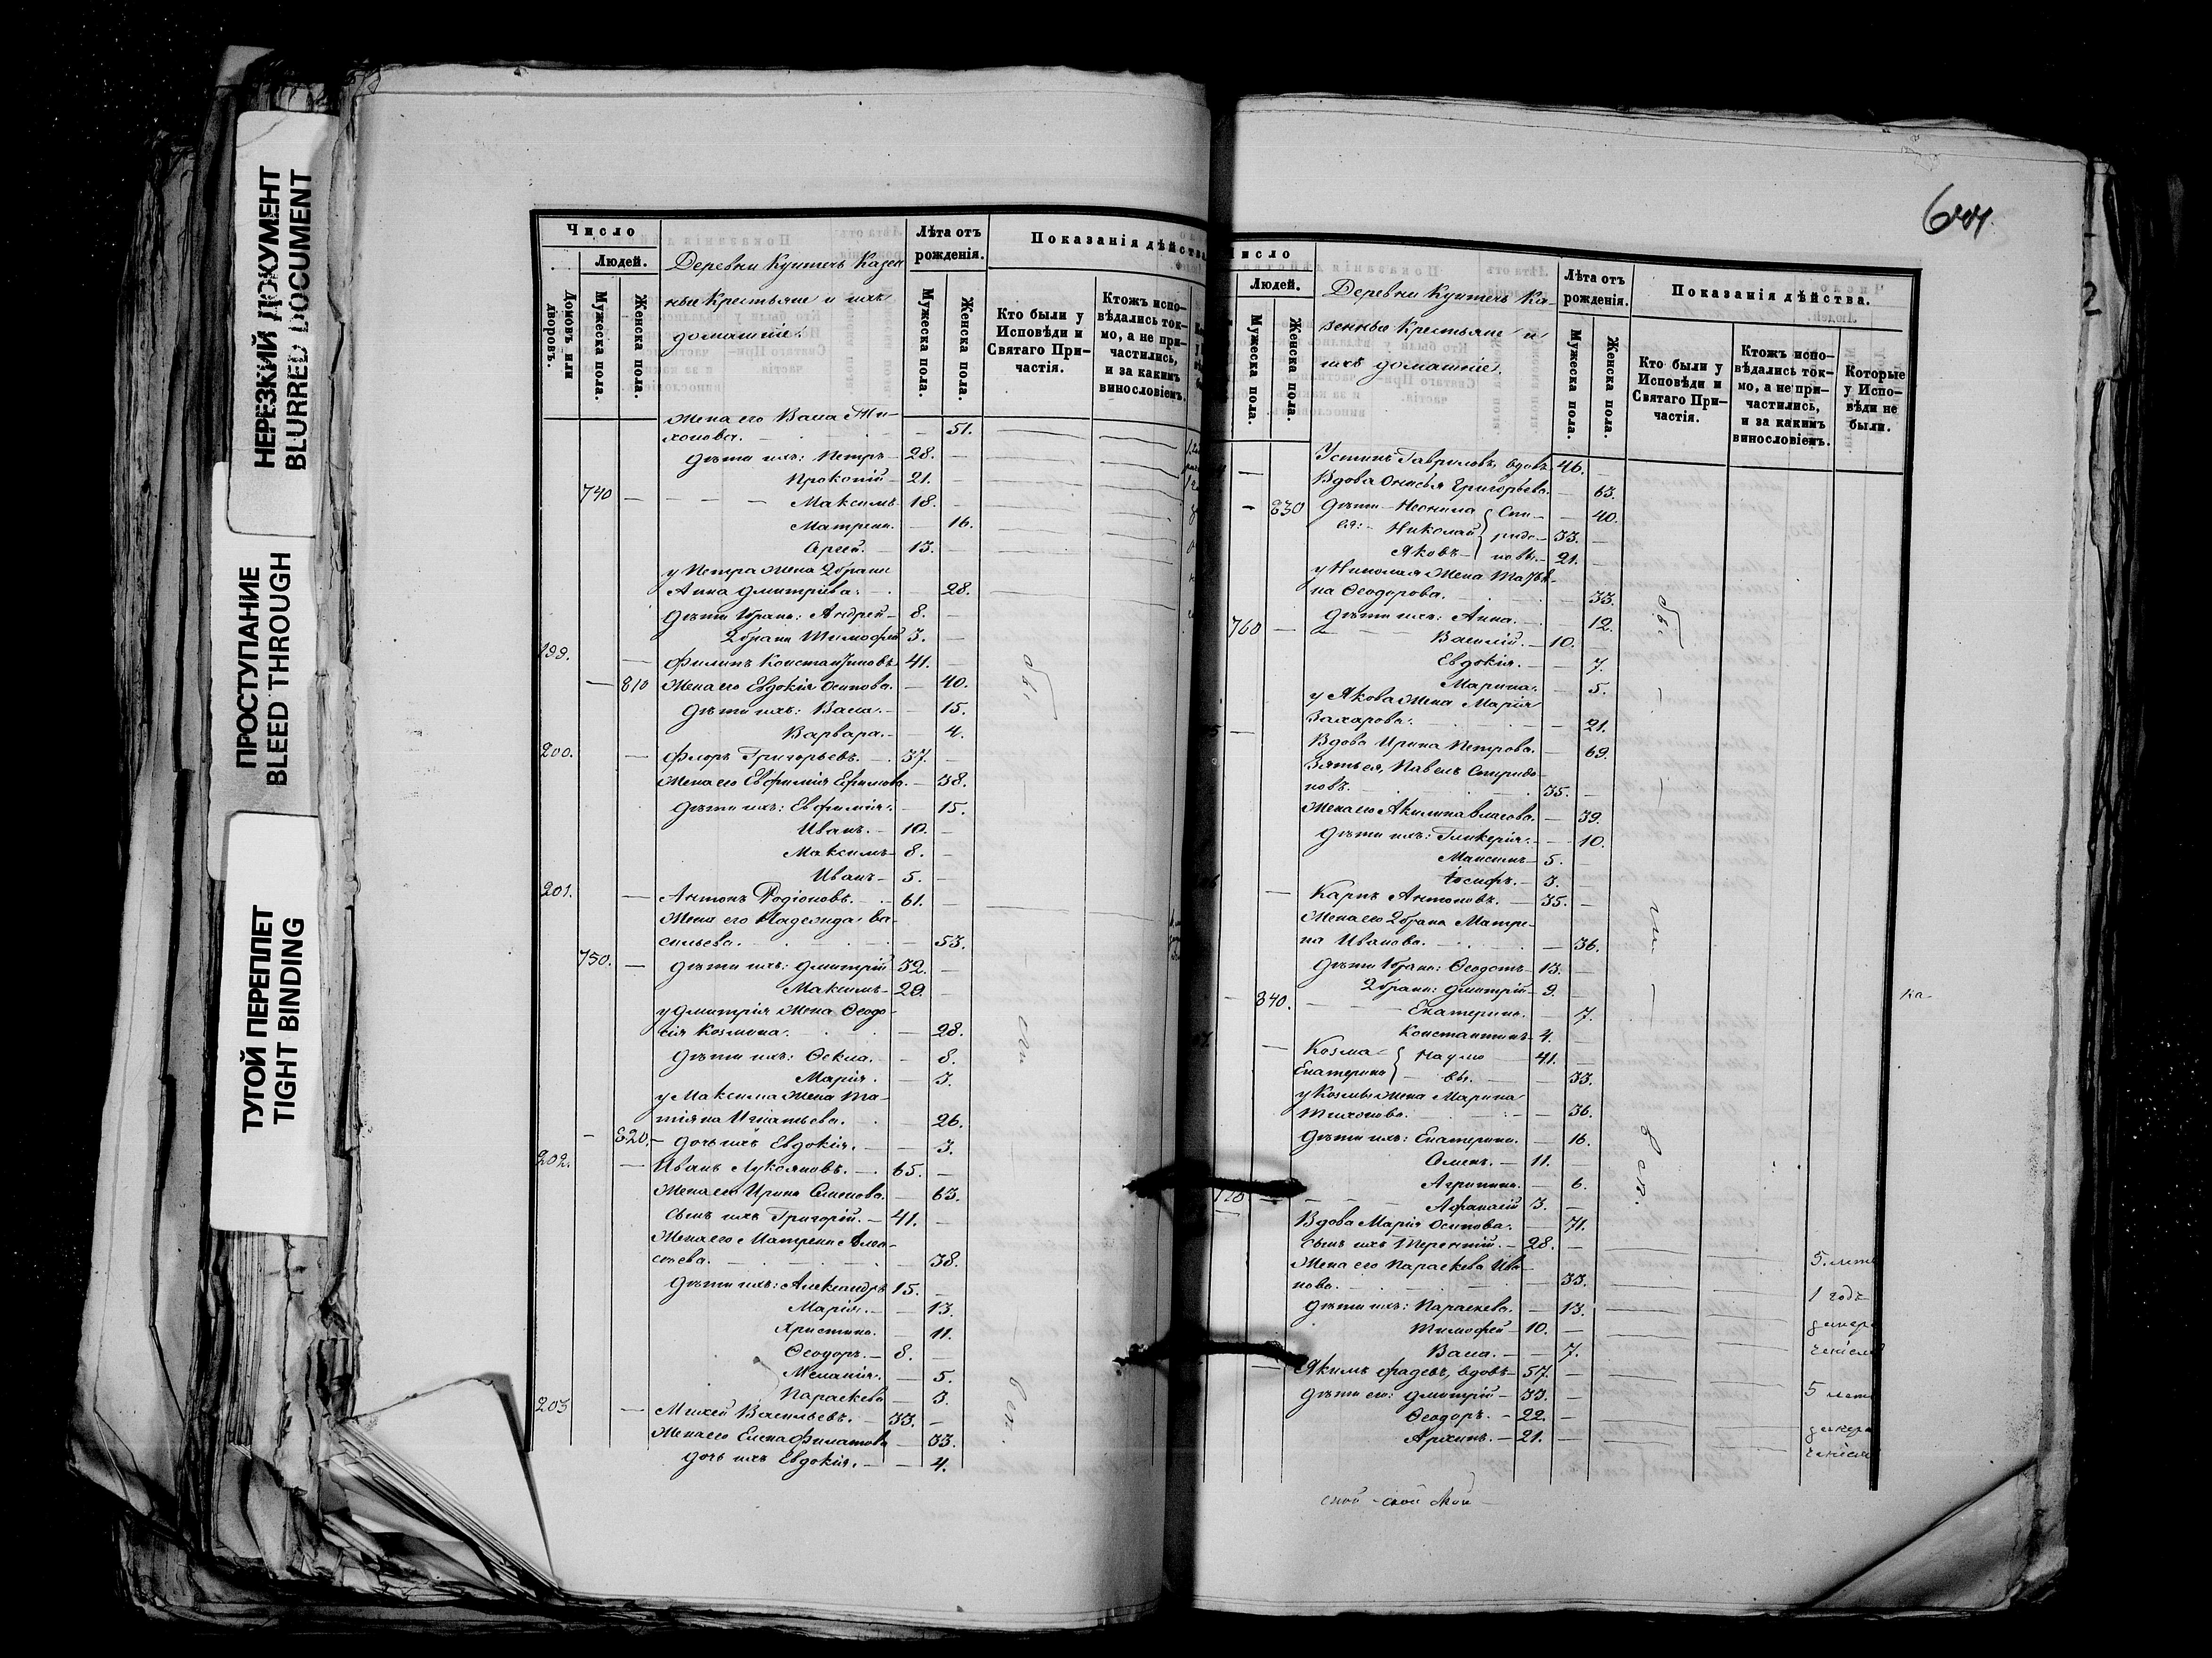 НЕРЕЗКИЙ ДОКУМЕНТ
BLURRED DOCUMENT
ПРОСТУПАНИЕ
BLEED THROUGH
ТУГОЙ ПЕРЕПЛЕТ
TIGHT BINDING
Число
Людей.
Домовъ или дворовъ.
Мужеска пола.
Женска пола.
Деревни Казен
ные Крестьяне и ихъ
домашніе:
Лѣта отъ рожденія.
Мужеска пола.
Женска пола.
Показанія дѣйства
Кто были у Исповѣди и Святаго Причастія.
Ктожъ исповѣдались токмо, а не причастились, и за какимъ винословіемъ.
Жена его Васса Ти-
хонова. 51.
Дѣти ихъ: Петръ 28.
Прокопій 21.
740 Максимъ 18.
Матрена. 16.
13.
у Петра жена 2 брака
Анна Дмитріева. 28.
Дѣти 1 брака: Андрей 8.
2 брака Тимофей 3.
199. Филипъ Константиновъ 41.
810 Жена его Евдокія Осипова. 40.
Дѣти ихъ: Васса. 15.
Варвара. 4.
200. Флоръ Григорьевъ. 37.
Жена его Евфимія Ефимова. 38.
Дѣти ихъ: Евфимія. 15.
Иванъ. 10.
Максимъ 8.
Иванъ 5.
201. Антонъ Родіоновъ. 61.
Жена его Надежда Ва-
сильева. 53.
750. Дѣти ихъ: Дмитрій 32.
Максимъ 29.
у Дмитрія жена Ѳеодо-
сія Козмина. 28.
Дѣти ихъ: Ѳекла. 8.
Марія. 3.
у Максима жена Та-
тіяна Игнатьева. 26.
820. дочь ихъ Евдокія. 3.
202. Иванъ Лукояновъ. 65.
Жена его Ирина Семенова. 63.
Сынъ ихъ Григорій. 41.
Жена его Матрена Алек-
сѣева. 38.
Дѣти ихъ: Александръ 15.
Марія. 13.
Христина. 11.
Ѳеодоръ. 8.
Меланія. 5.
Параскева 3.
203 Михей Васильевъ. 33.
Жена его Елена Филатова 33.
дочь ихъ Евдокія. 4.
число
Людей.
Мужеска пола.
Женска пола.
Деревни Ка-
зенные Крестьяне и
ихъ домашніе.
Лѣта отъ рожденія.
Мужеска пола.
Женска пола.
Показанія дѣйства.
Кто были у Исповѣди и Святаго Причастія.
Ктожъ исповѣдались токмо, а не причастились, и за какимъ винословіемъ.
Которые у Исповѣди не были.
Устинъ Гавриловъ, вдовъ 46.
Вдова Григорьева. 63.
830 Дѣти Неонила Спи- 40.
ея: Николай ридо- 33.
Яковъ новы. 21.
у Николая жена Татья-
на Ѳеодорова. 33.
760 Дѣти ихъ: Анна. 12.
Василій. 10.
Евдокія. 7.
Марина. 5.
у Якова жена Марія
Захарова. 21.
Вдова Ирина Петрова. 69.
Зять ея, Павелъ Спиридо-
новъ. 35.
Жена его Акилина Власова. 39.
Дѣти ихъ: Гликерія. 10.
5.
Іосифъ. 3.
Карпъ Антоновъ. 35.
Жена его 2 брака Матре-
на Иванова. 36.
Дѣти 1 брака: Ѳеодотъ 13.
2 брака: Дмитрій 9.
840. Екатерина. 7.
Константинъ 4.
Козма Наумо 41.
Екатерина вы. 33.
у Козмы жена Марина
Тихонова. 36.
Дѣти ихъ: Екатерина. 16.
Семенъ. 11.
Агрипина. 6.
Афанасій 3.
Вдова Марія Осипова. 71.
Сынъ ихъ Терентій. 28.
Жена его Параскева Ива-
нова. 33.
Дѣти ихъ: Параскева. 13.
Тимофей 10.
Васса. 7.
Якимъ Фадеевъ, вдовъ 57.
Дѣти его: Дмитрій 33.
Ѳеодоръ. 22.
Архипъ. 21.
5 лѣтъ
1 годъ
5 лѣтъ